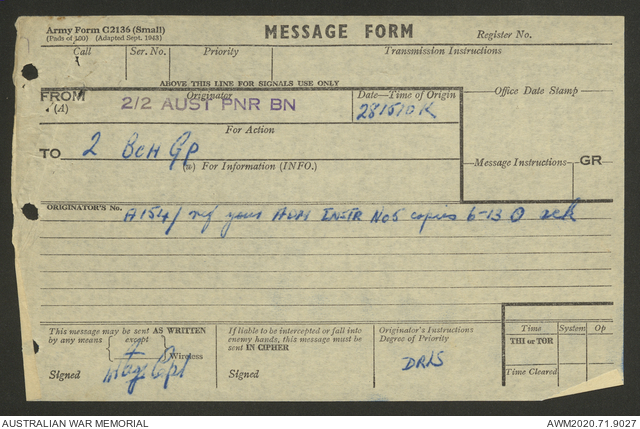 Army Form C2136 (Small)
(Pads of 100) (Adapted Sept. 1943)
MESSAGE FORM
Register No.
Call
Ser. No.
Priority
Transmission Instructions
ABOVE THIS LINE FOR SIGNALS USE ONLY
FROM
(A)
Originator
2/2 AUST PNR BN
Date—Time of Origin
281510K
Office Date Stamp
For Action
TO
2 BCH GP
(w) For Information (INFO.)
Message Instructions
GR
ORIGINATOR'S No.
A154/ ref your ADM INSTR No5 copies 6-13 O ack
This message may be sent AS WRITTEN
by any means
except
Wireless
Signed
Capt
If liable to be intercepted or fall into
enemy hands, this message must be
sent IN CIPHER
Signed
Originator's Instructions
Degree of Priority
DRLS
Time
System
Op
THI or TOR
Time Cleared
AUSTRALIAN WAR MEMORIAL
AWM2020.71.9027